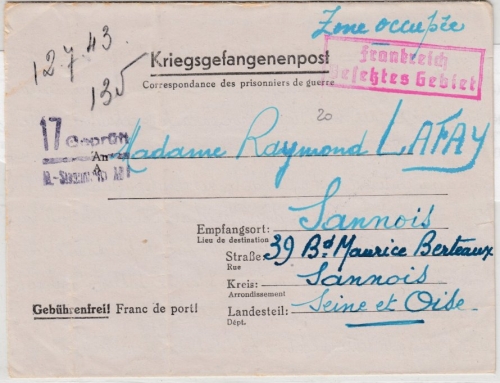 Zone occupée
12 7 43
135
Kriegsgefangenenpost
Correspondance des prisonniers de guerre
Frankreich
besetztes Gebiet
20
17 Geprüft
An
A
Madame Raymond LAFAY
Empfangsort: Sannois
Lieu de destination
Straße: 39 Bd Maurice Berteaux
Rue
Kreis: Sannois
Arrondissement
Gebührenfrei! Franc de port!
Landesteil: Seine et Oise
Dépt.